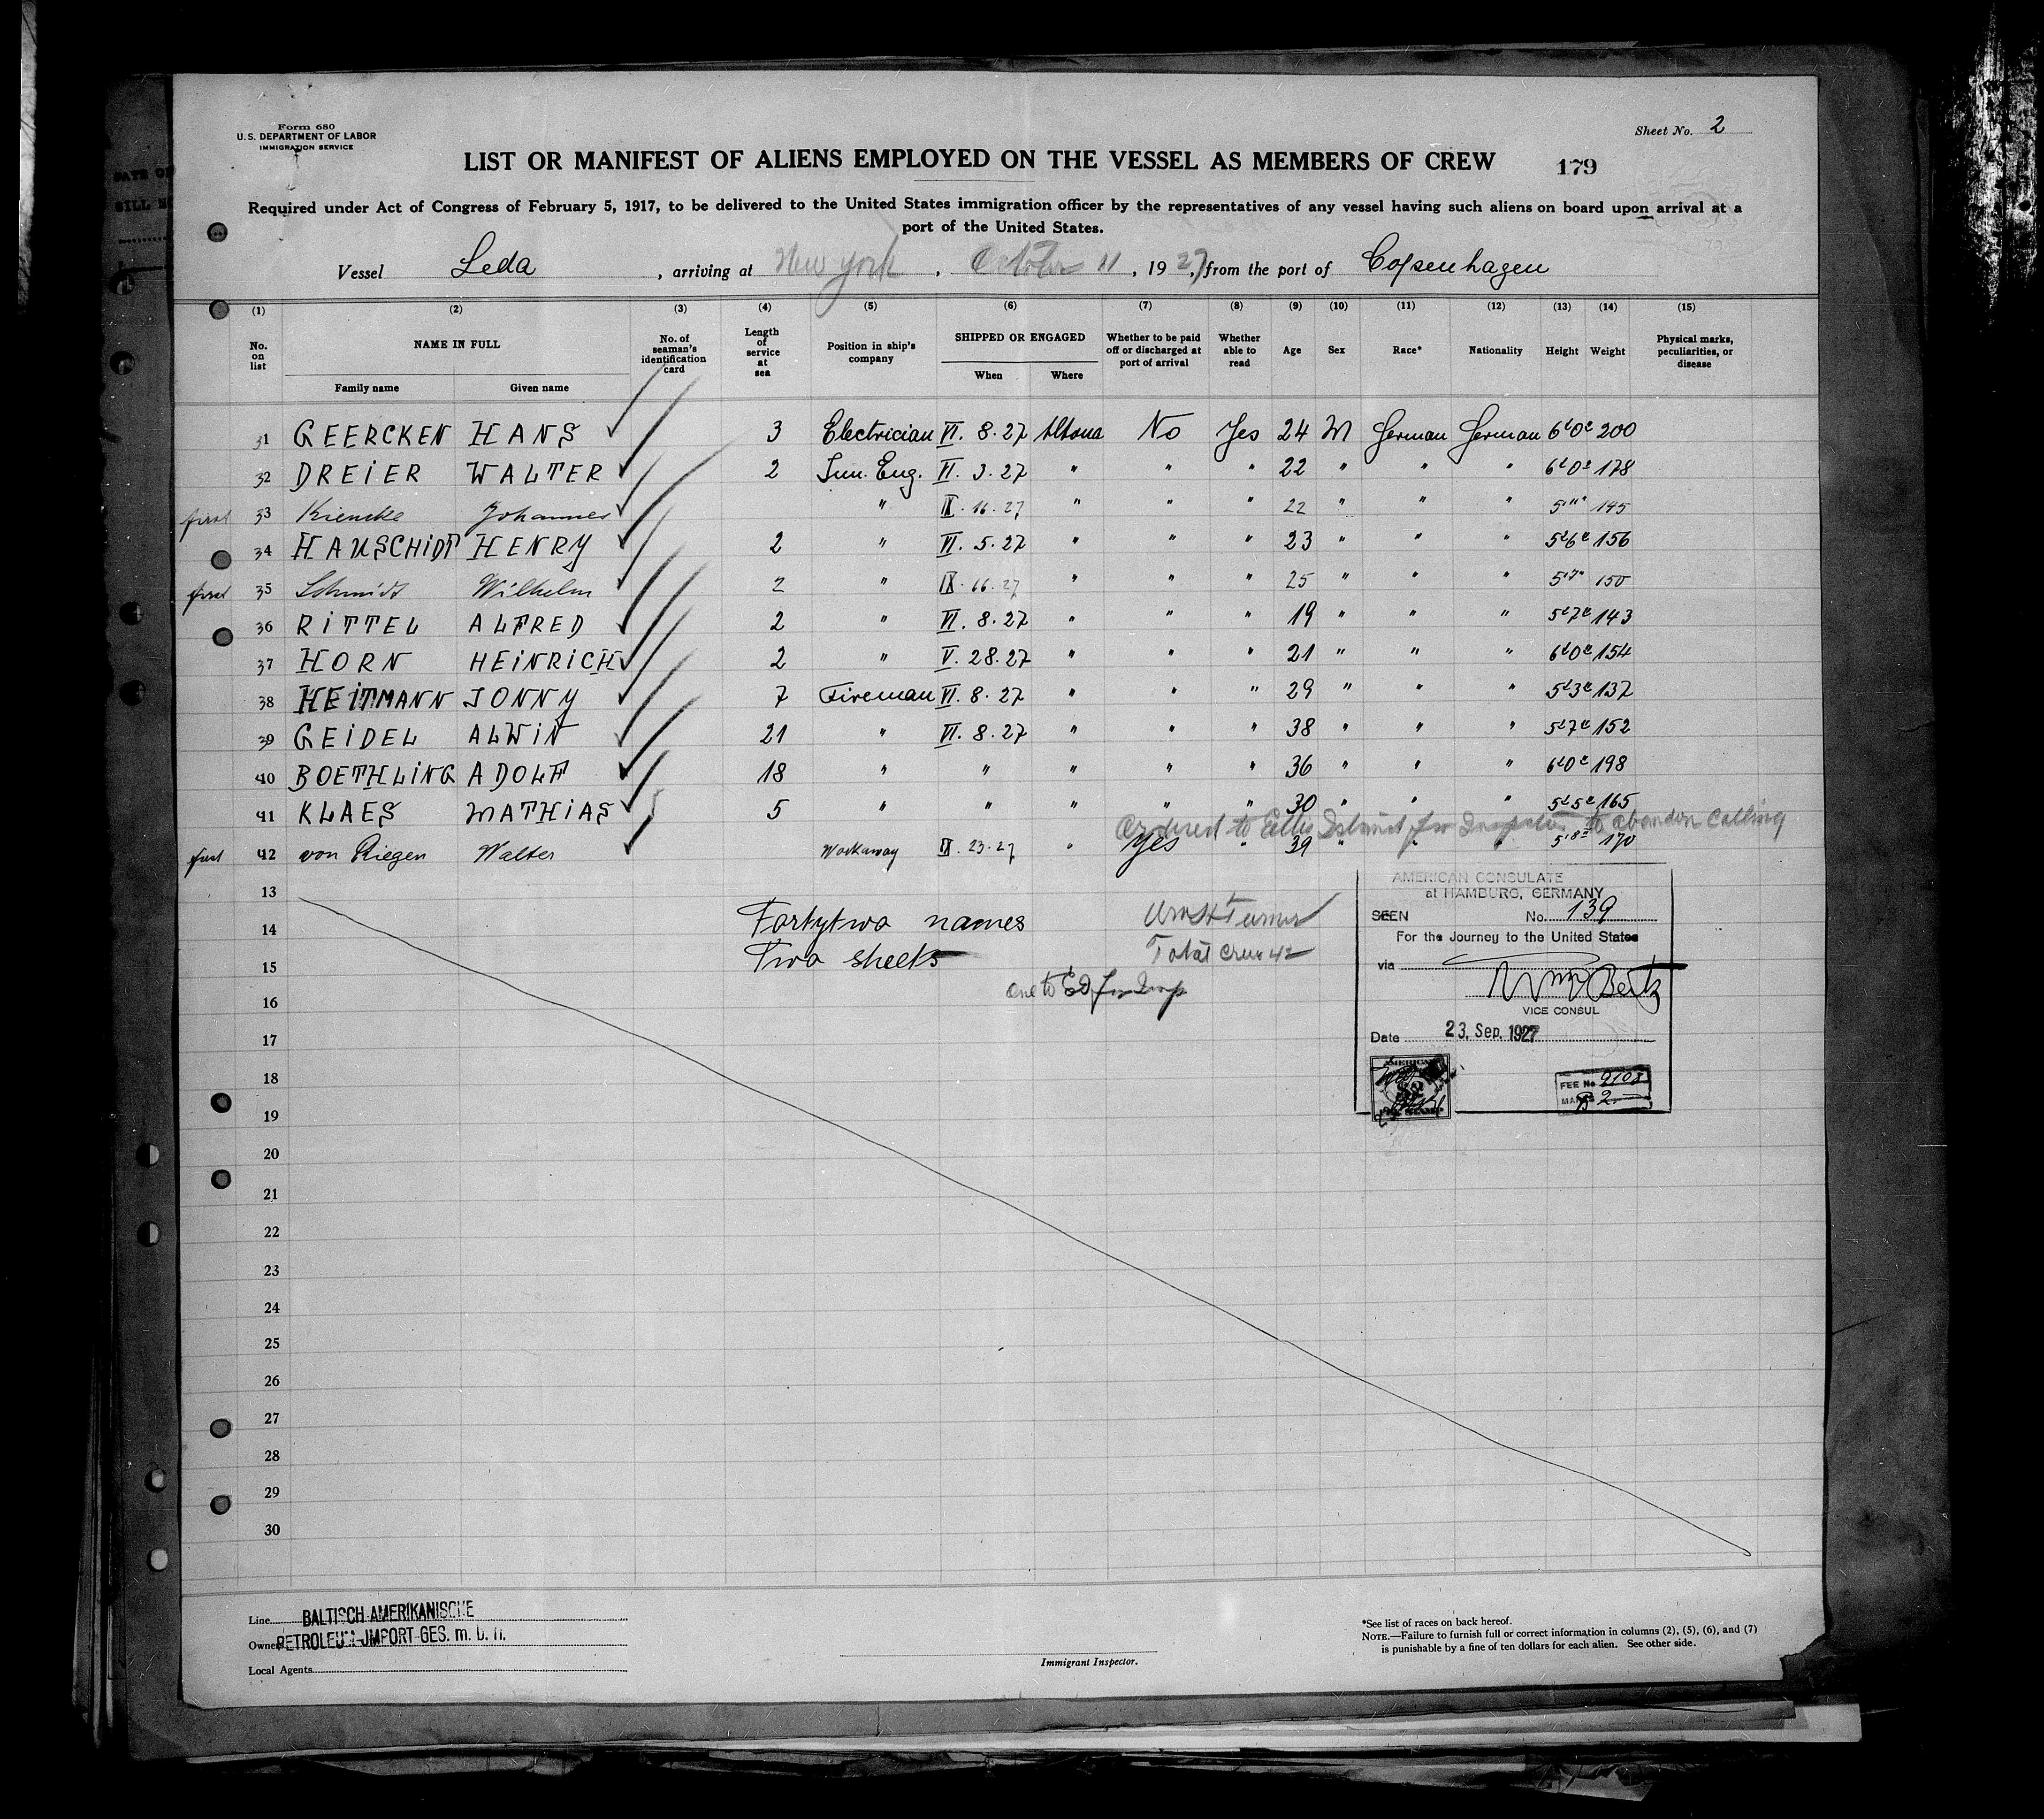 Form 680
U.S. DEPARTMENT OF LABOR
IMMIGRATION SERVICE
Sheet No. 2
LIST OR MANIFEST OF ALIENS EMPLOYED ON THE VESSEL AS MEMBERS OF CREW 179
Required under Act of Congress of February 5, 1917, to be delivered to the United States immigration officer by the representatives of any vessel having such aliens on board upon arrival at a
port of the United States.
Vessel Leda, arriving at New York, October 11, 1927, from the port of Copenhagen
(1) (2) (3) (4) (5) (6) (7) (8) (9) (10) (11) (12) (13) (14) (15)
No. on list NAME IN FULL No. of seaman's identification card Length of service at sea Position in ship's company SHIPPED OR ENGAGED Whether to be paid off or discharged at port of arrival Whether able to read Age Sex Race* Nationality Height Weight Physical marks, peculiarities, or disease
Family name Given name When Where
31 GEERCKEN HANS 3 Electrician VI. 8. 27 Altona No Yes 24 M German German 6'0" 200
32 DREIER WALTER 2 Jun. Eng. VI. 3. 27 " " " 22 " " " 6'0" 178
first 33 Kiencke Johannes " IX. 16. 27 " " " 22 " " " 5'11" 145
34 HAUSCHIDT HENRY 2 " VI. 5. 27 " " " 23 " " " 5'6" 156
first 35 Schmidt Wilhelm 2 " IX. 16. 27 " " " 25 " " " 5'7" 150
36 RITTEL ALFRED 2 " VI. 8. 27 " " " 19 " " " 5'7" 143
37 HORN HEINRICH 2 " V. 28. 27 " " " 21 " " " 6'0" 154
38 HEITMANN JONNY 7 Fireman VI. 8. 27 " " " 29 " " " 5'3" 137
39 GEIDEL ALWIN 21 " VI. 8. 27 " " " 38 " " " 5'7" 152
40 BOETHLING ADOLF 18 " " " " " 36 " " " 6'0" 198
41 KLAES MATHIAS 5 " " " " " 30 " " " 5'5" 165
Ordered to Ellis Island for Inspection to abandon calling
first 42 von Riegen Walter Workaway IX. 23. 27 " Yes " 39 " " " 5'8" 170
13
14
15
16
17
18
19
20
21
22
23
24
25
26
27
28
29
30
Fortytwo names
Two sheets
Wm H Turner
Total Crew 42
one to EI for Insp
AMERICAN CONSULATE
at HAMBURG, GERMANY
SEEN No. 139
For the Journey to the United States
via
VICE CONSUL
Date 23. Sep. 1927
AMERICAN
FEE STAMP
FEE No 9108
MARKS 2
Line BALTISCH-AMERIKANISCHE
Owner PETROLEUM-JMPORT-GES. m. b. H.
Local Agents
Immigrant Inspector.
*See list of races on back hereof.
NOTE.—Failure to furnish full or correct information in columns (2), (5), (6), and (7)
is punishable by a fine of ten dollars for each alien. See other side.